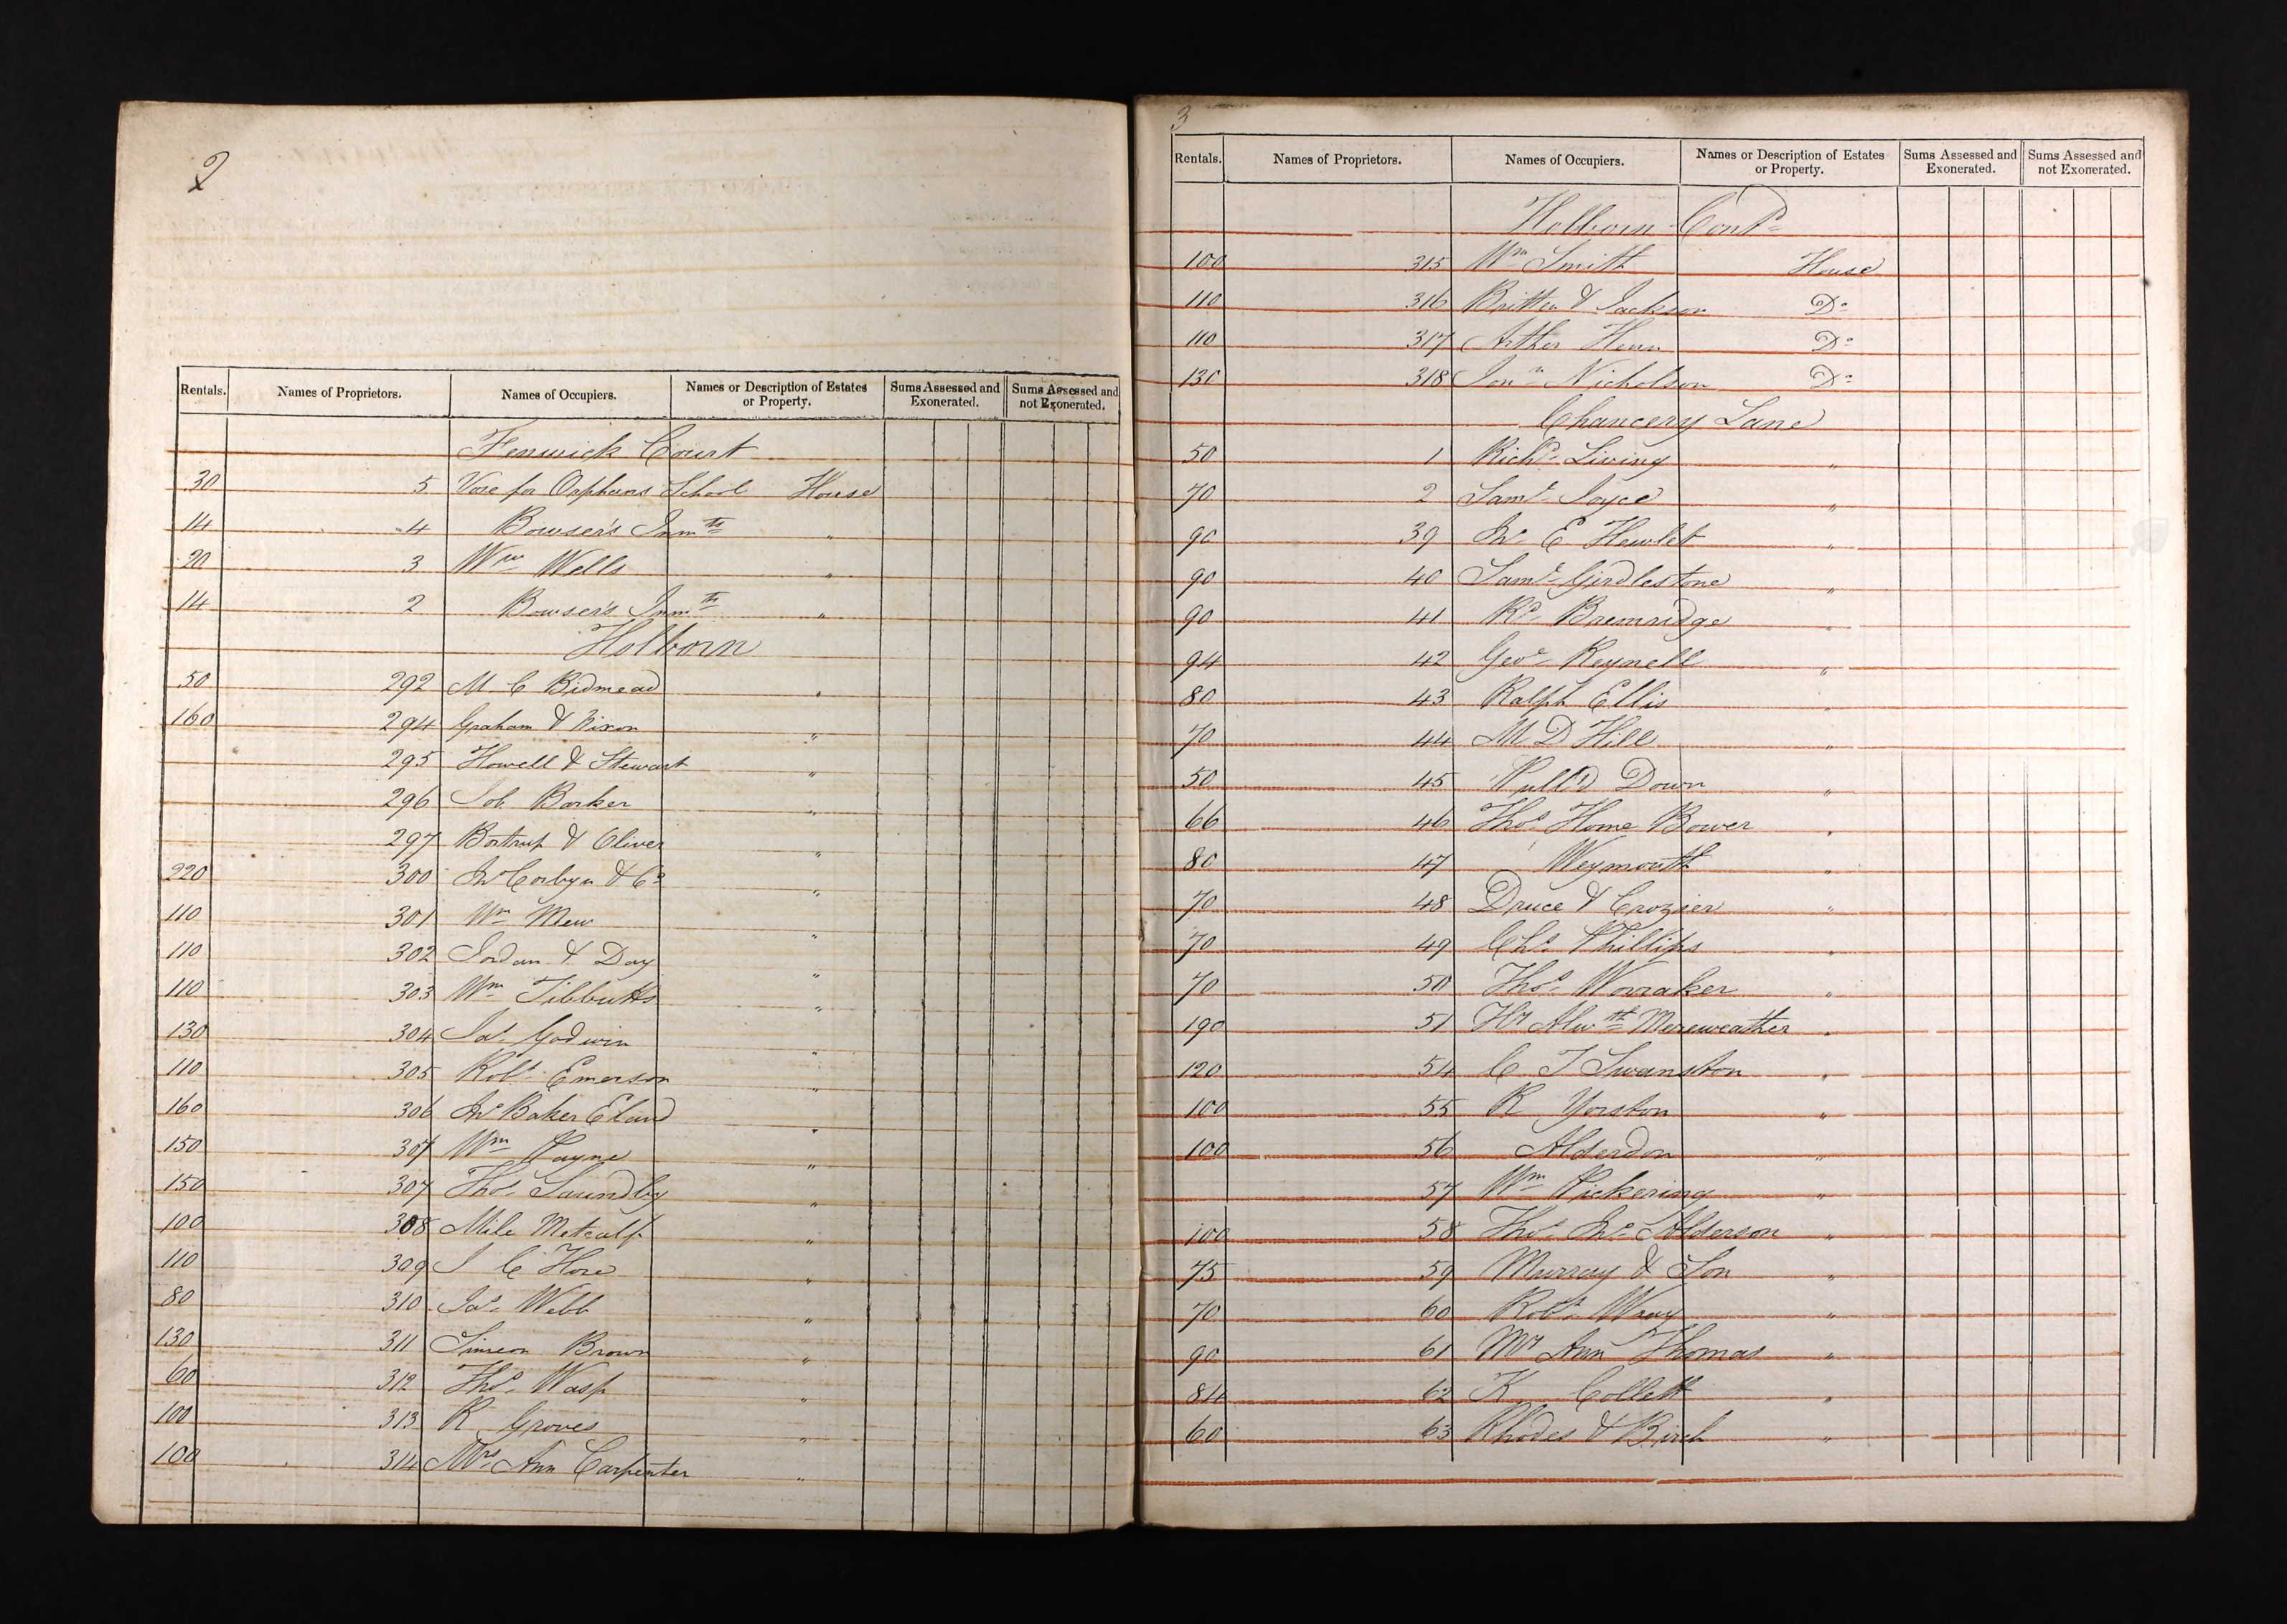 2
Rentals. Names of Proprietors. Names of Occupiers. Names or Description of Estates or Property. Sums Assessed and Exonerated. Sums Assessed and not Exonerated.
Fenwick Court
30 5 Vore for Orphans School House
14 4 Bowser's Inmts "
20 3 Wm Wells "
14 2 Bowser's Inmts "
Holborn
50 292 M C Bidmead "
160 294 Graham & Nixon "
295 Howell & Stewart "
296 Job Barker "
297 & Oliver "
220 300 Jno Corbyn & Co "
110 301 Wm Mew "
110 302 Jordan & Day "
110 303 Wm Tibbutts "
130 304 Jas Godwin "
110 305 Robt Emerson "
160 306 Jno Baker Eland "
150 307 Wm Payne "
150 307 Thos Saundby "
100 308 Mile Metcalf "
110 309 J C Hore "
80 310 Jas Webb "
130 311 Simeon Brown "
60 312 Thos Wasp "
100 313 R Groves "
100 314 Mrs Ann Carpenter "
3
Rentals. Names of Proprietors. Names of Occupiers. Names or Description of Estates or Property. Sums Assessed and Exonerated. Sums Assessed and not Exonerated.
Holborn Contd
100 315 Wm Smith House
110 316 Britten & Jackson Do
110 317 Arther Do
130 318 Jonn Nicholson Do
Chancery Lane
50 1 Richd Living "
70 2 Saml Joyce "
90 39 Jno E Hewlet "
90 40 Saml Girdlestone "
90 41 Rd Bremridge "
94 42 Geoe Reynell "
80 43 Ralph Ellis "
70 44 M D Hill "
50 45 Pull'd Down "
66 46 Thos Home Bower "
80 47 Weymouth "
70 48 Druce & Crozier "
70 49 Chs Phillips "
70 50 Thos Worraker "
190 51 Hy Alwth Mereweather "
120 54 C T Swanston "
100 55 R Yorston "
100 56 Alderdon "
57 Wm Pickering "
100 58 Thos Jno Alderson "
75 59 Murray & Son "
70 60 Robt Wray "
90 61 Mrs Ann Thomas "
84 62 K Collett "
60 63 Rhodes & Birch "